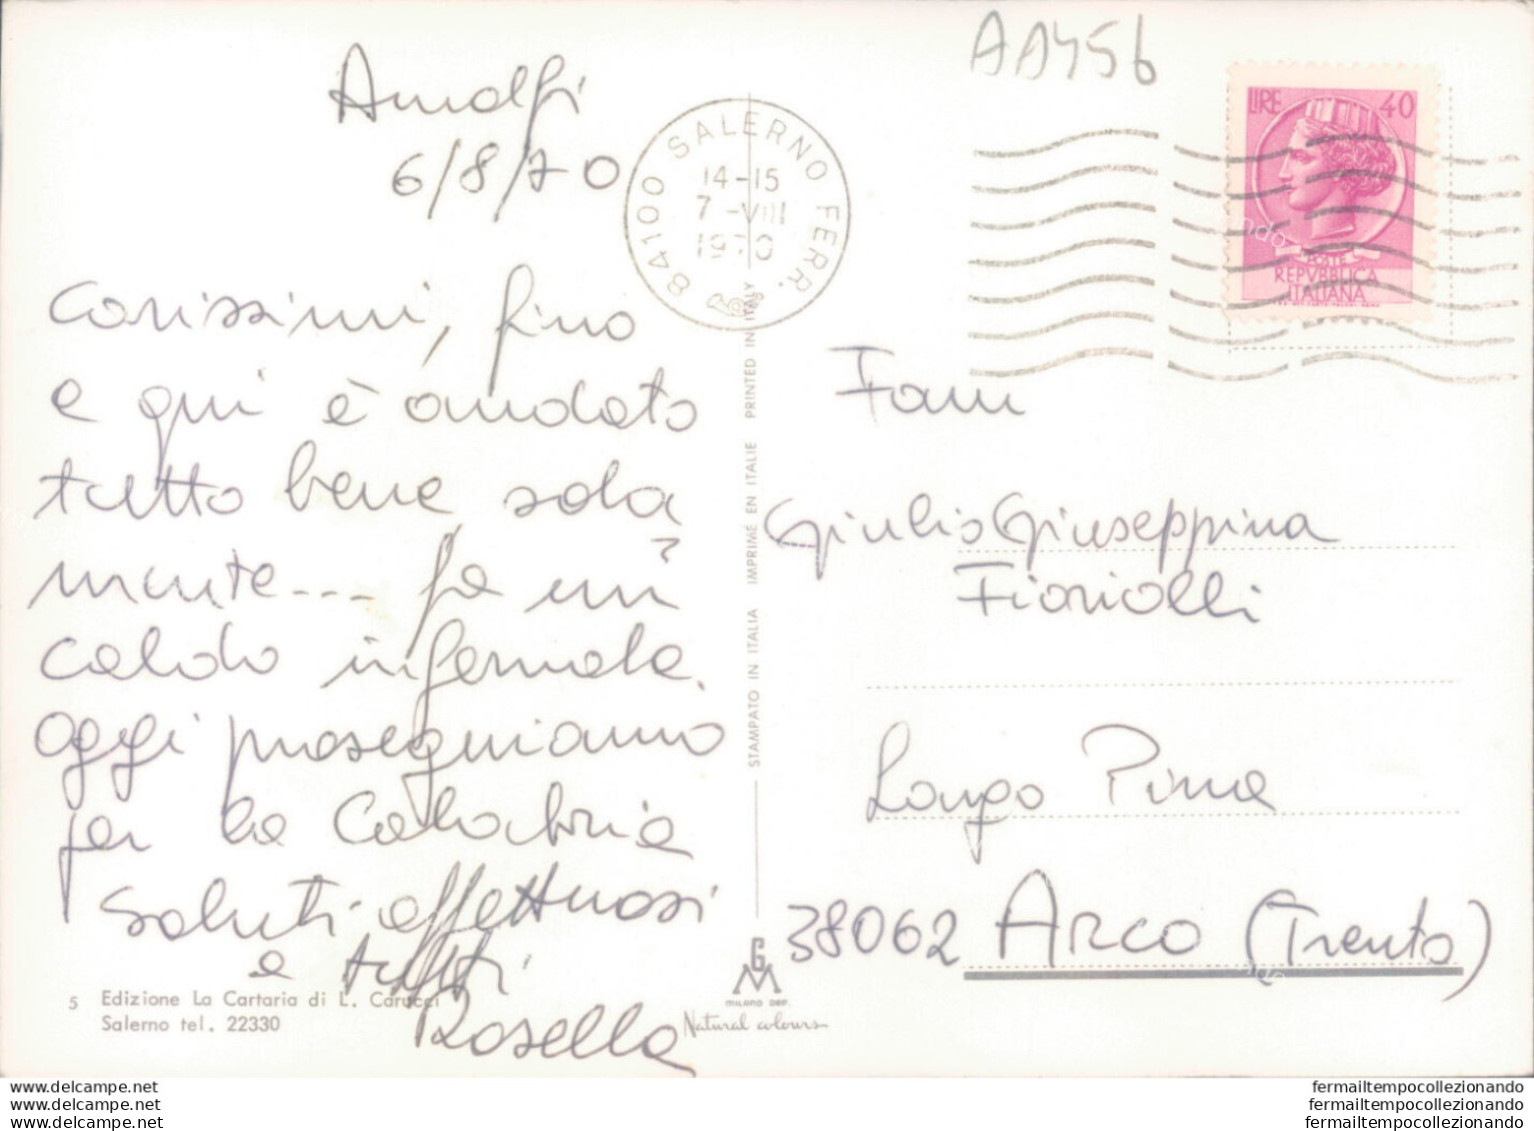 AA456
Amalfi
6/8/70
84100 SALERNO FERR.
14-15
7-VIII
1970
LIRE 40
POSTE
REPVBBLICA
ITALIANA
Carissimi, fino
a qui è andato
tutto bene sola
mente... fa un
caldo infernale.
Oggi proseguiamo
per la Calabria
Saluti affettuosi
a tutti
Rosella
Fam
Giulio Giuseppina
Fioriolli
Largo Pina
38062 ARCO (Trento)
STAMPATO IN ITALIA IMPRIMÉ EN ITALIE PRINTED IN ITALY
5 Edizione La Cartaria di L. Carucci
Salerno tel. 22330
GM
MILANO DEP.
Natural colours
www.delcampe.net
www.delcampe.net
www.delcampe.net
fermailtempocollezionando
fermailtempocollezionando
fermailtempocollezionando